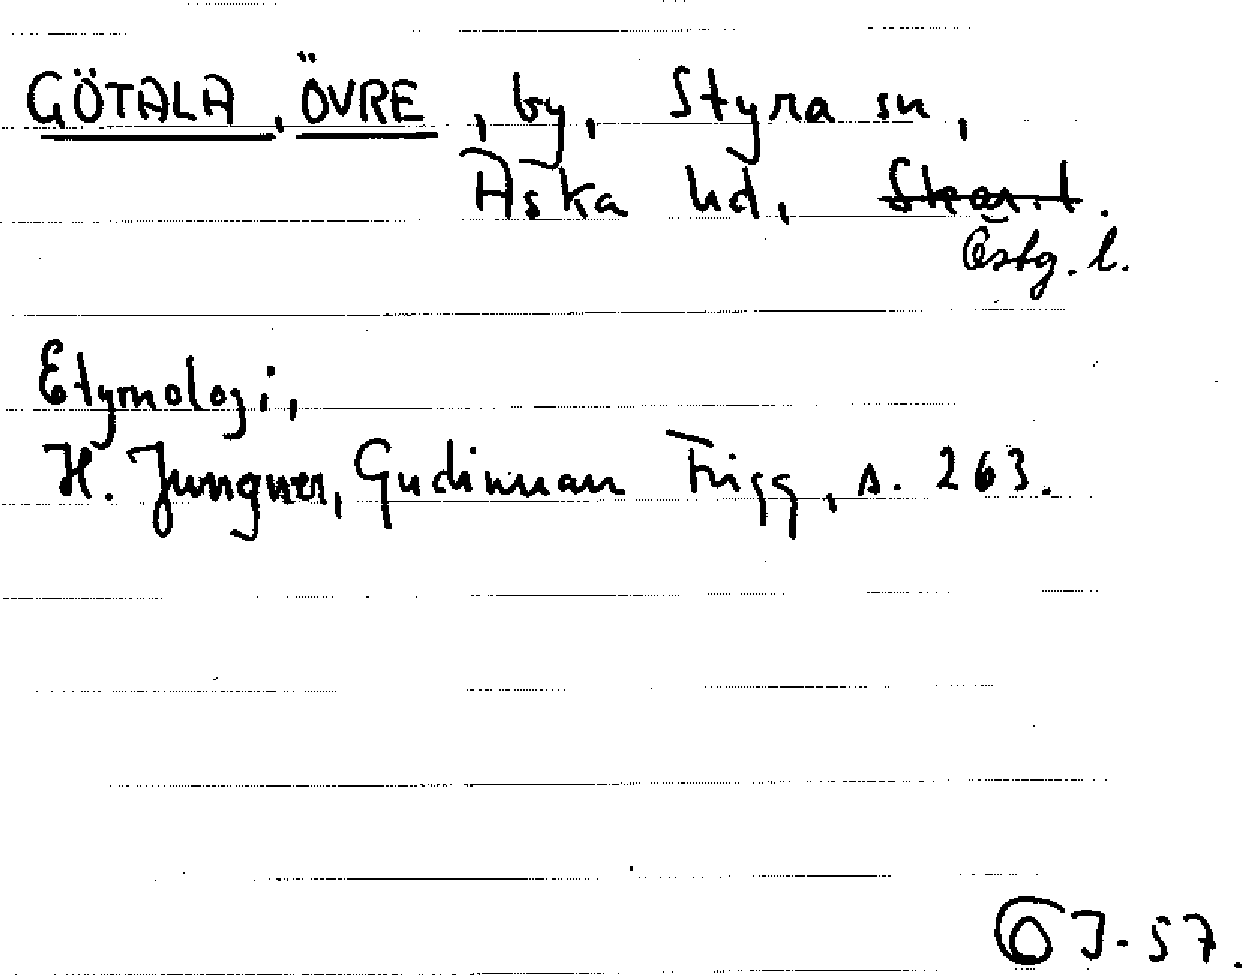 GÖTALA, ÖVRE, by, Styra sn,
Aska hd, Skar.l.
Östg. l.
Etymologi,
H. Jungner, Gudinnan Frigg, s. 263.
ÖJ-57.